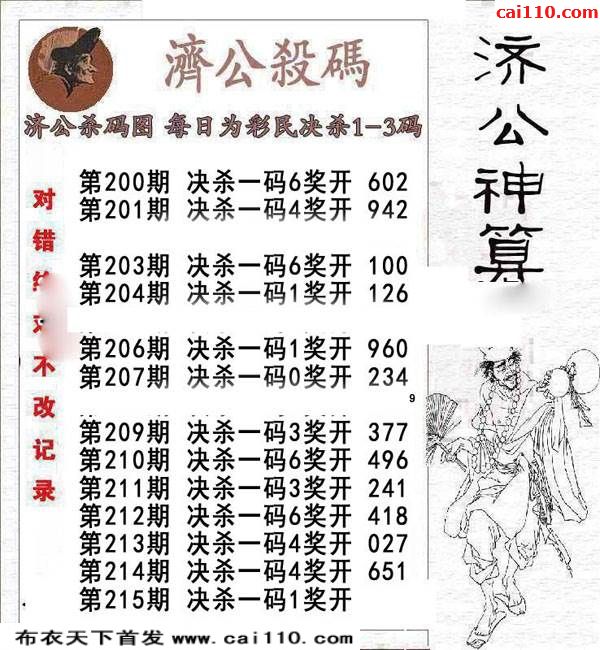 cai110.com
濟公殺碼
济公杀码图 每日为彩民决杀1-3码
济公神算
对错绝对不改记录
第200期 决杀一码6奖开 602
第201期 决杀一码4奖开 942
第203期 决杀一码6奖开 100
第204期 决杀一码1奖开 126
第206期 决杀一码1奖开 960
第207期 决杀一码0奖开 234
9
第209期 决杀一码3奖开 377
第210期 决杀一码6奖开 496
第211期 决杀一码3奖开 241
第212期 决杀一码6奖开 418
第213期 决杀一码4奖开 027
第214期 决杀一码4奖开 651
第215期 决杀一码1奖开
布衣天下首发 www.cai110.com